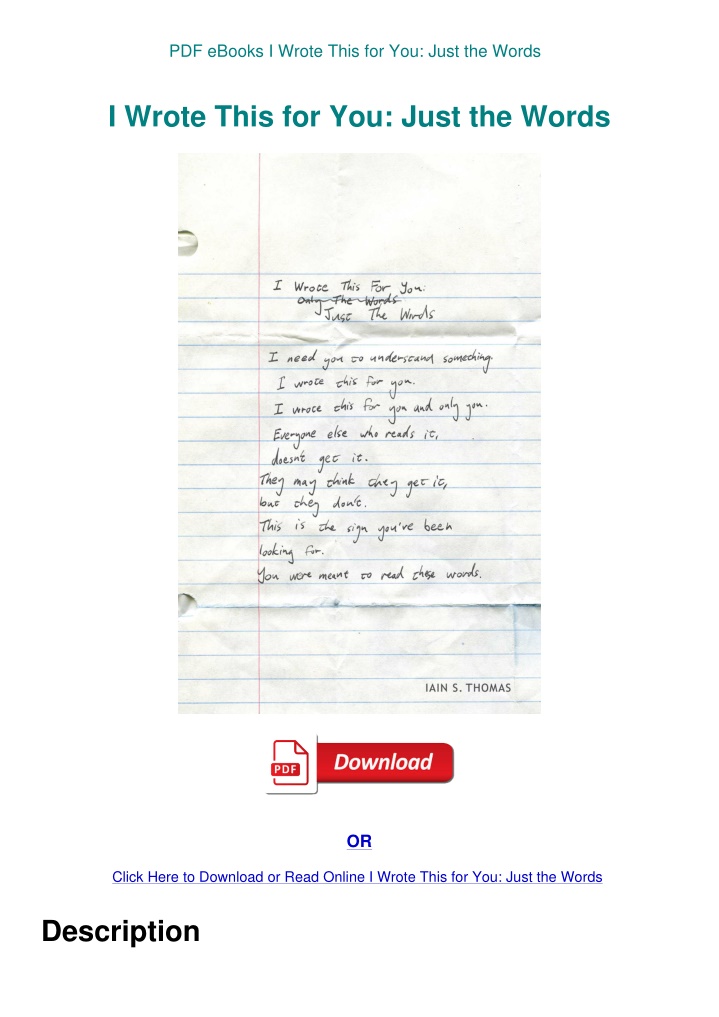 PDF eBooks I Wrote This for You: Just the Words
I Wrote This for You: Just the Words
I Wrote This For You:
Only The Words
Just The Words
I need you to understand something.
I wrote this for you.
I wrote this for you and only you.
Everyone else who reads it,
doesn't get it.
They may think they get it,
but they don't.
This is the sign you've been
looking for.
You were meant to read these words.
IAIN S. THOMAS
PDF
Download
OR
Click Here to Download or Read Online I Wrote This for You: Just the Words
Description